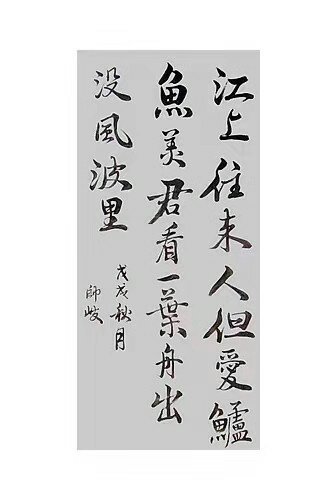 江上往来人但愛鱸
魚美君看一葉舟出
没風波里
戊戌秋月
師岐